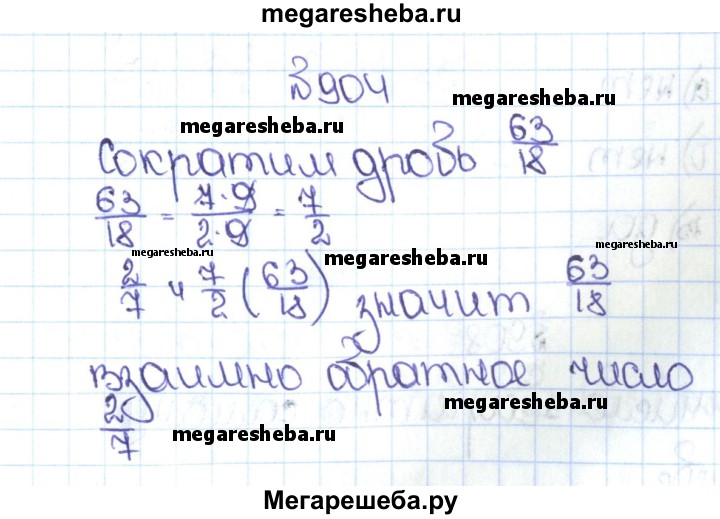 megaresheba.ru
№904
megaresheba.ru
megaresheba.ru
Сократим дробь 63/18
63/18 = 7·9/2·9 = 7/2
megaresheba.ru
megaresheba.ru
megaresheba.ru
2/7 и 7/2 (63/18) значит 63/18
взаимно обратное число
megaresheba.ru
2/7
megaresheba.ru
Мегарешеба.ру